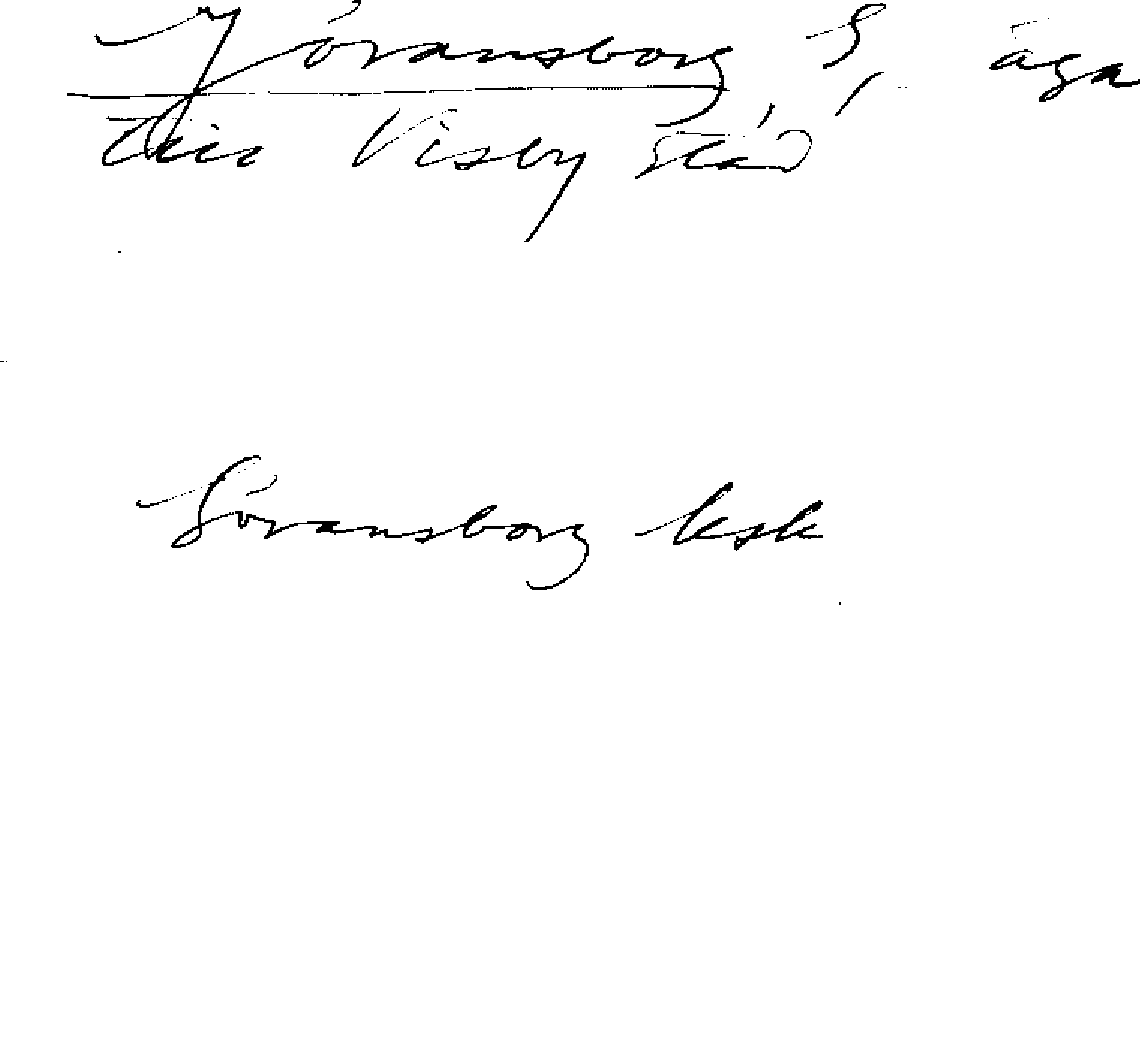 Göransborg S, äga
till Visby stad
Göransborg ksk